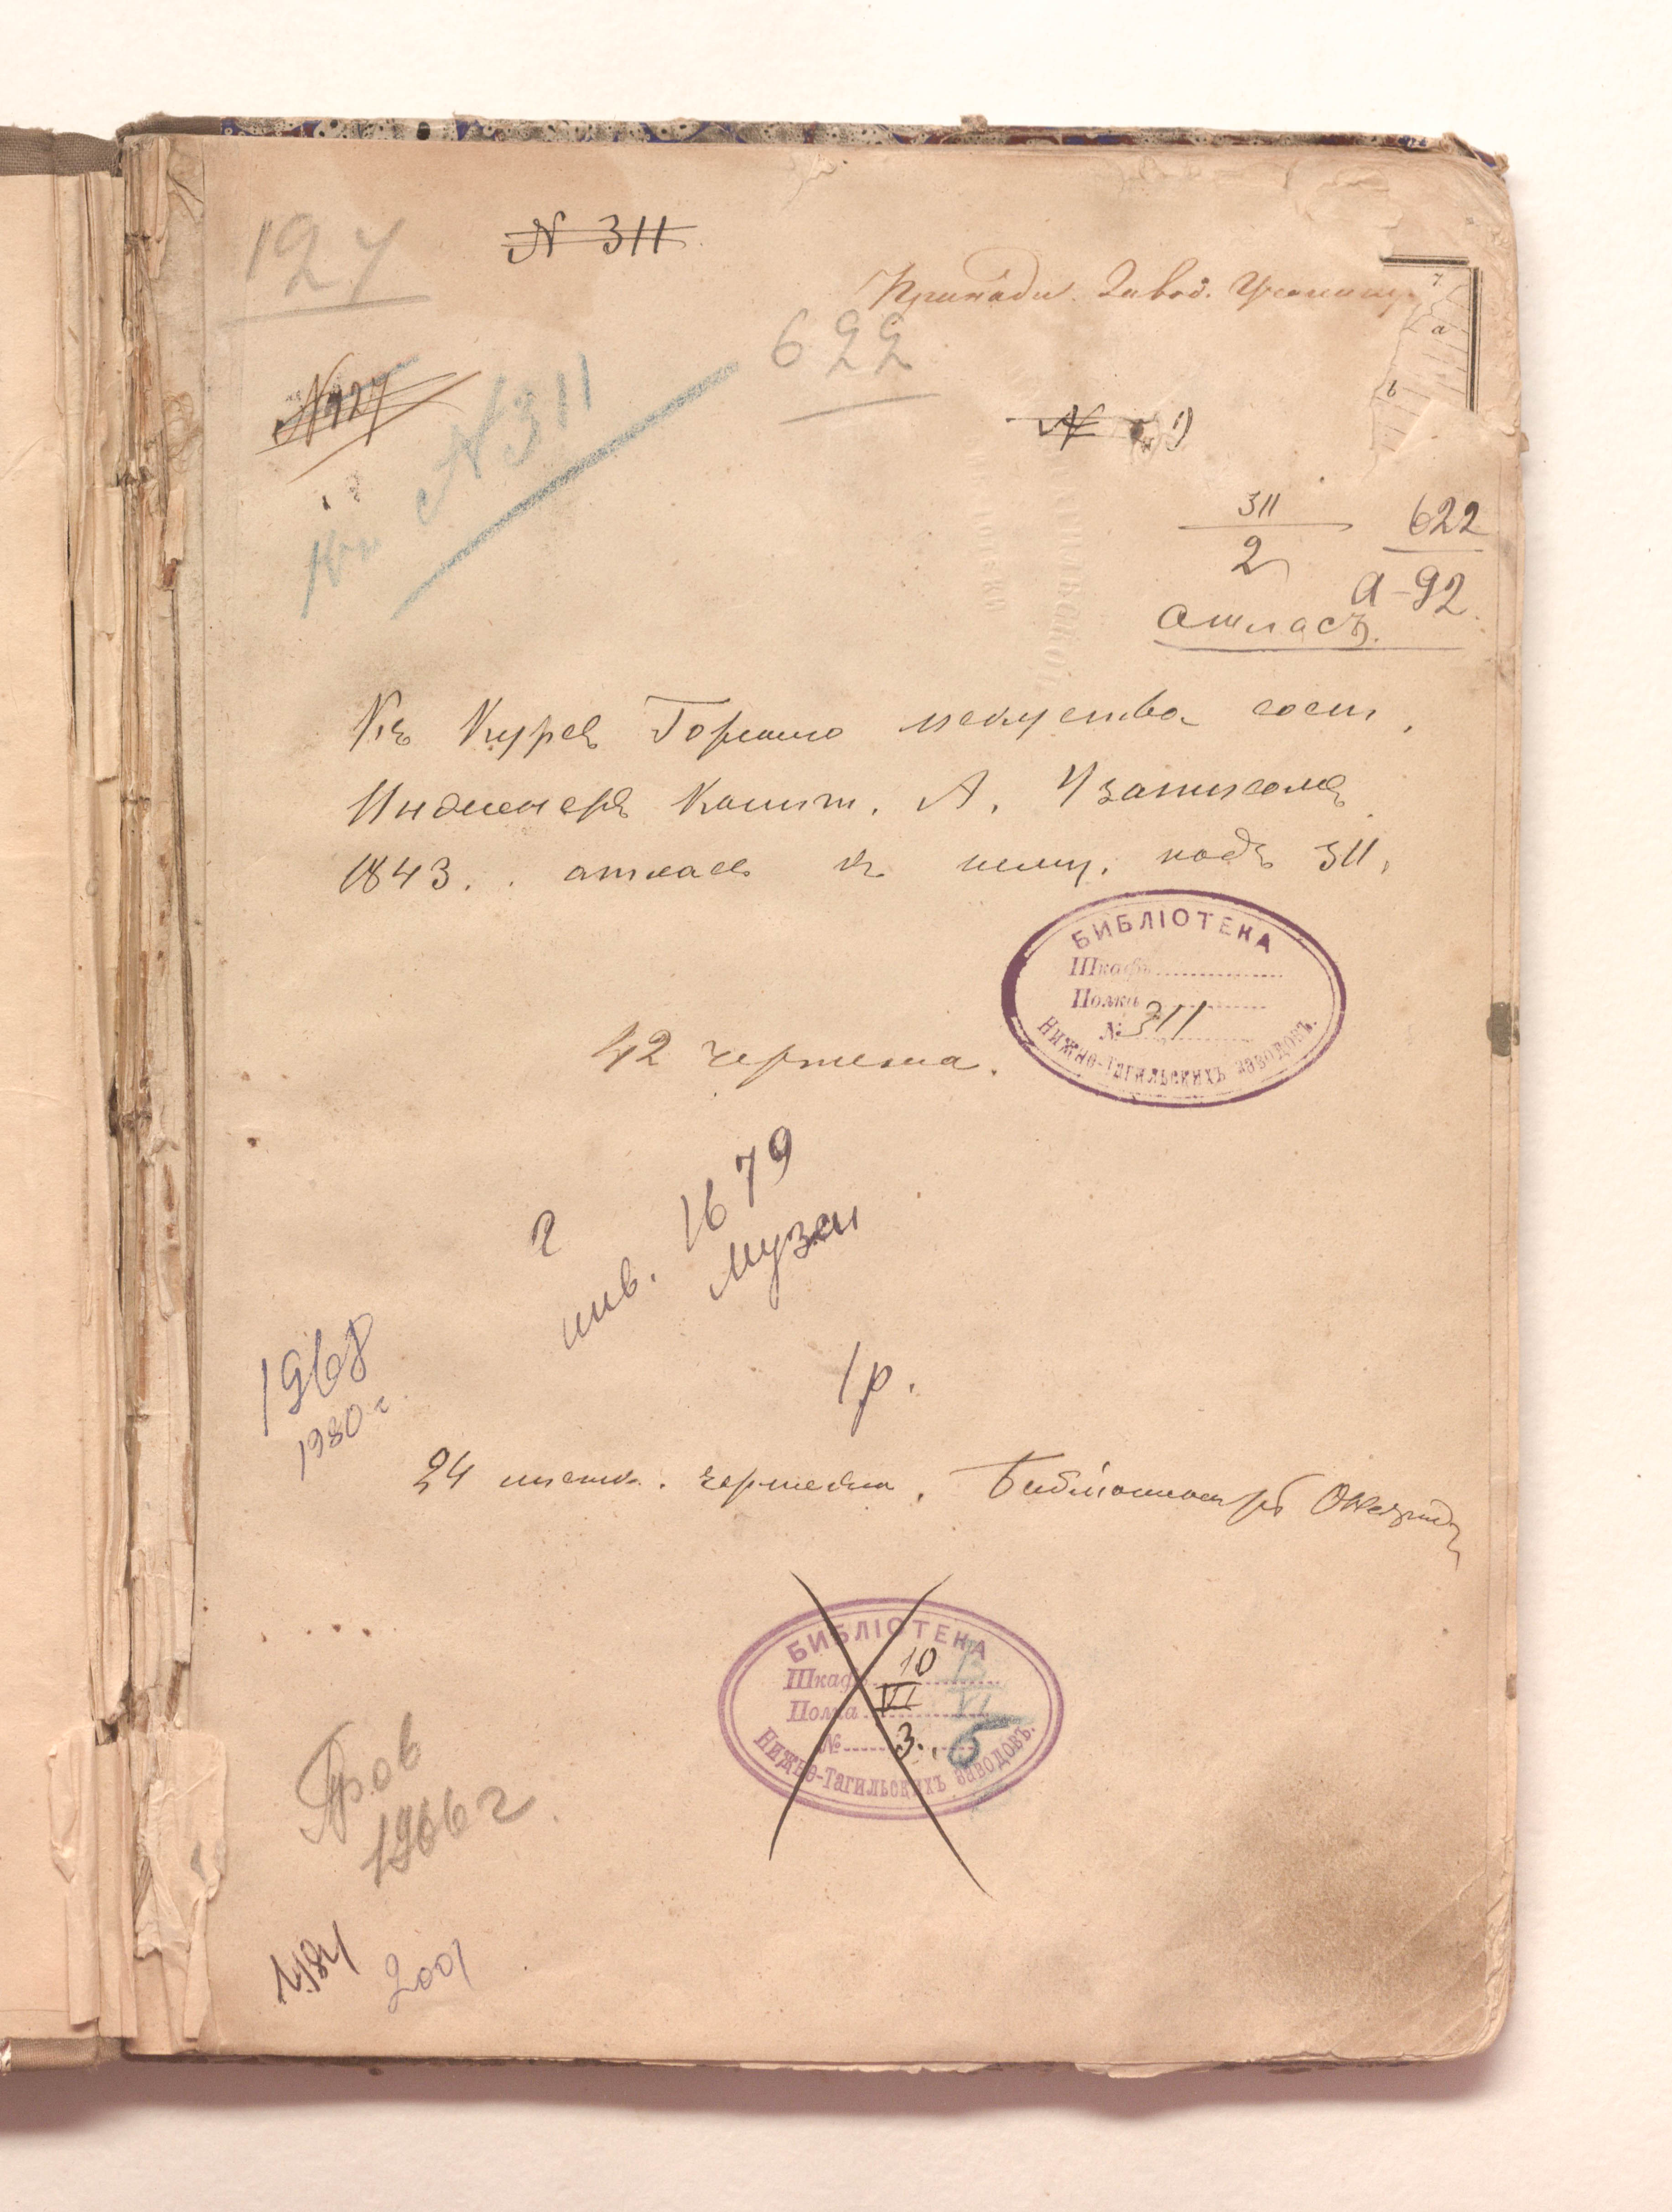 127
№ 311
Принадл. Завод. Училищу
622
№ 127
№ 311
Кн
№
311
2
622
а-92
Атласъ.
Къ Курсъ Горнаго искуства сост.
Инженеръ Капит. А. Узатисомъ
1843. . атласъ къ нему. подъ 311.
БИБЛІОТЕКА
Шкафъ
Полка
№ 311
Нижне-Тагильскихъ заводовъ.
42 чертежа.
2
инв. 1679
Музеи
1968
1980 г.
1 р.
24 листа. чертежа. Библіотекарь
БИБЛІОТЕКА
Шкафъ 10 13
Полка VI VI
№ 3. 5
Нижне-Тагильскихъ заводовъ.
1966 г.
2001